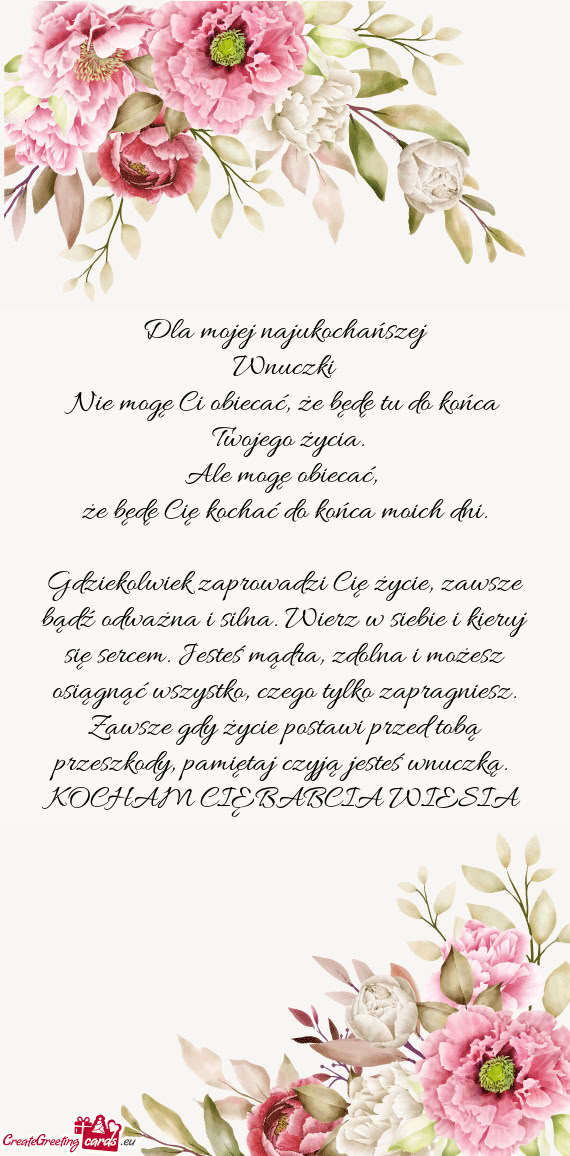 Dla mojej najukochańszej
Wnuczki
Nie mogę Ci obiecać, że będę tu do końca
Twojego życia.
Ale mogę obiecać,
że będę Cię kochać do końca moich dni.
Gdziekolwiek zaprowadzi Cię życie, zawsze
bądź odważna i silna. Wierz w siebie i kieruj
się sercem. Jesteś mądra, zdolna i możesz
osiągnąć wszystko, czego tylko zapragniesz.
Zawsze gdy życie postawi przed tobą
przeszkody, pamiętaj czyją jesteś wnuczką.
KOCHAM CIĘ BABCIA WIESIA
CreateGreeting cards .eu